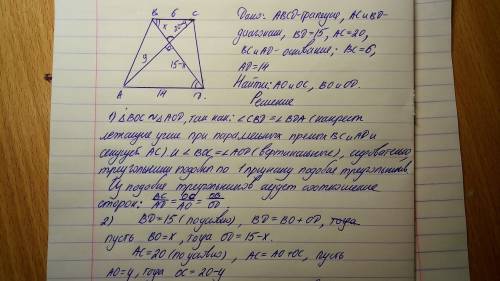 B 6 C
x 20-y
O
y 15-x
A 14 D
Дано: ABCD-трапеция, AC и BD-
диагонали, BD=15, AC=20,
BC и AD - основание; BC=6,
AD=14
Найти: AO и OC, BO и OD.
Решение
1) △BOC ~ △AOD, так как: ∠CBD=∠BDA (накрест
лежащие углы при прямых BC и AD и
секущей AC) и ∠BOC=∠AOD (вертикальные), следовательно
треугольники подобны по I признаку подобия треугольников.
Из подобия треугольников следует соотношение
сторон: BC/AD = OC/AO = OB/OD.
2) BD=15 (по условию), BD=BO+OD, тогда
пусть BO=x, тогда OD=15-x.
AC=20 (по условию), AC=AO+OC, пусть
AO=y, тогда OC=20-y